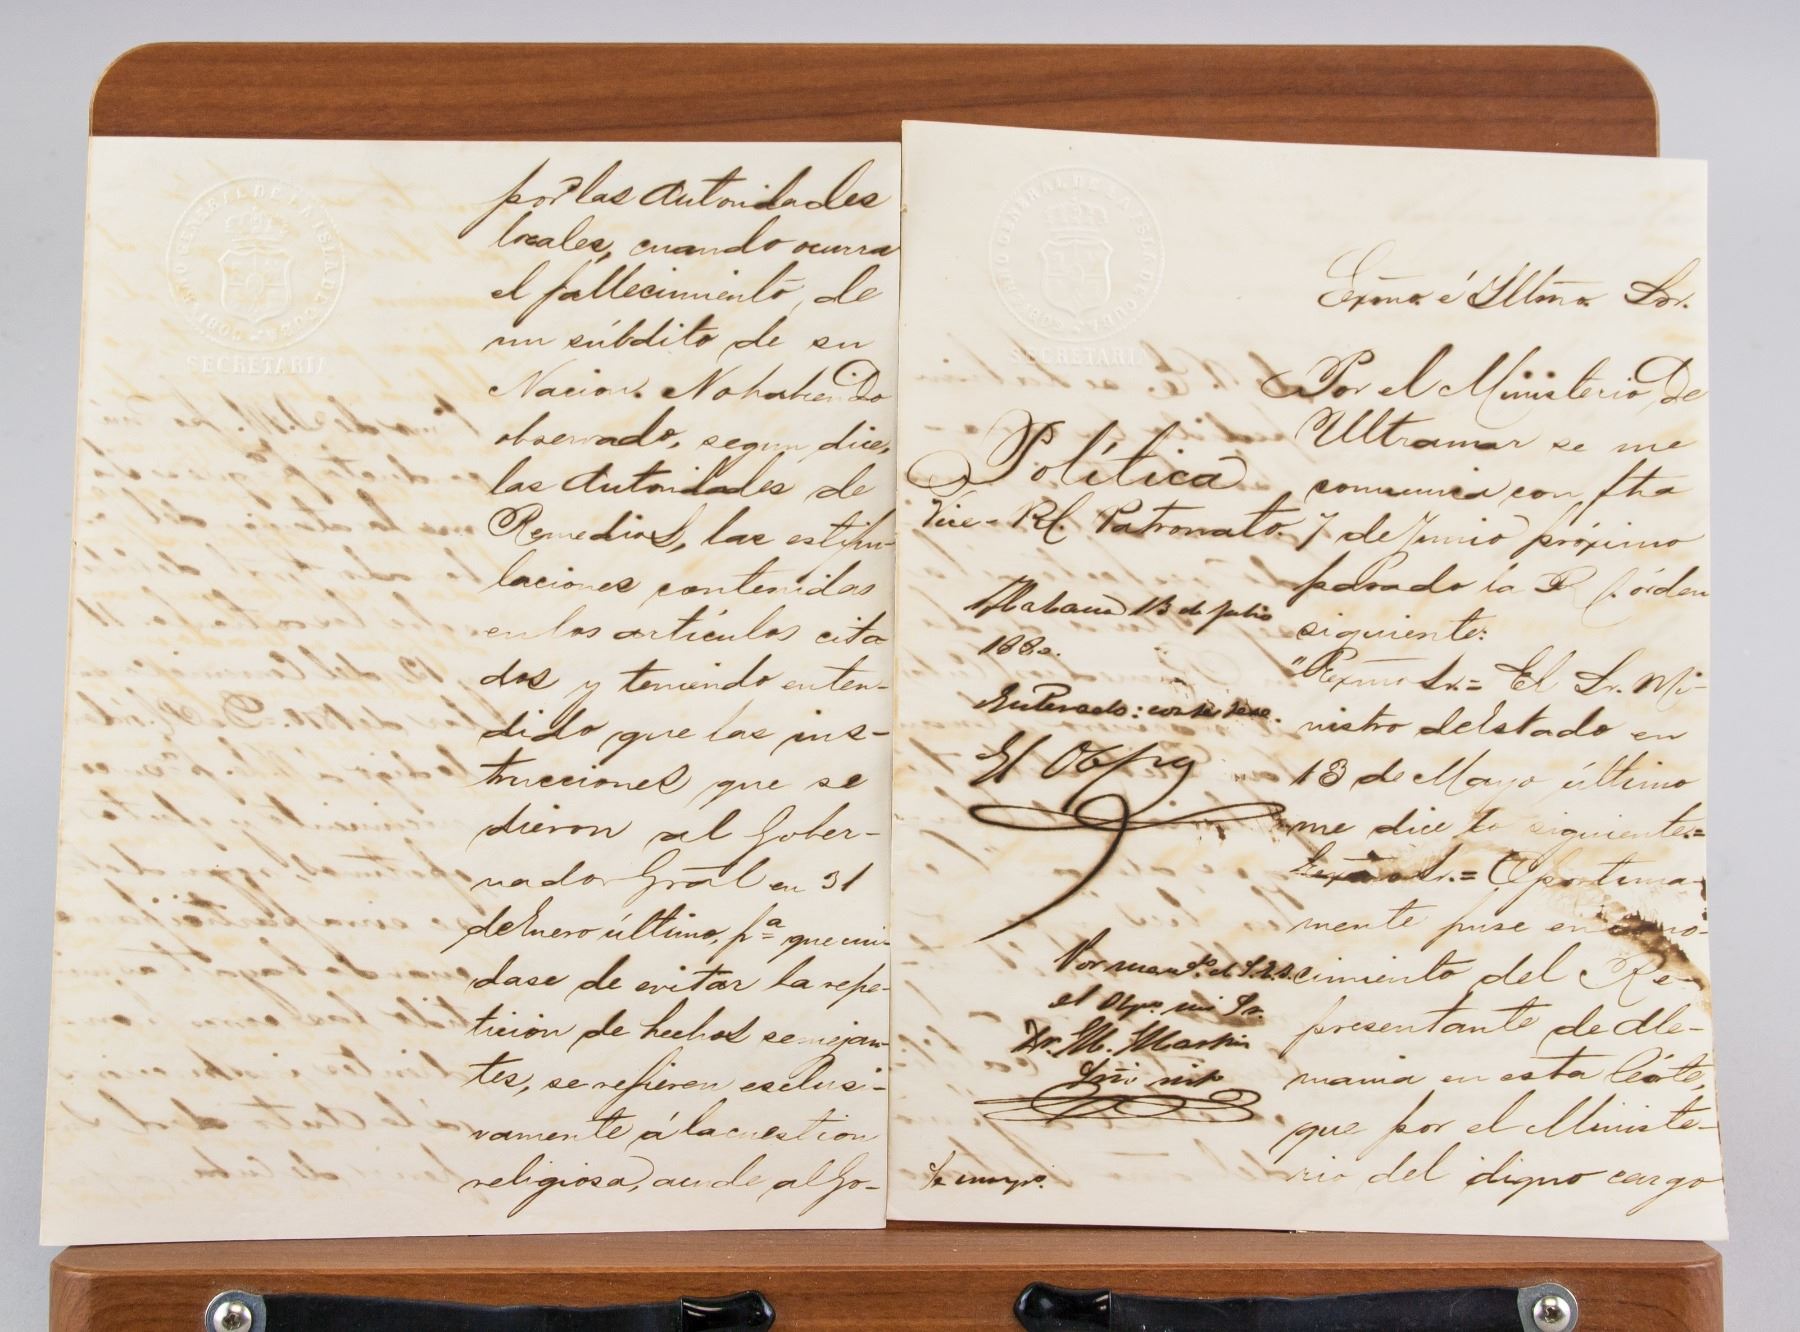 GOBIERNO GENERAL DE LA ISLA DE CUBA
SECRETARIA
por las Autoridades
locales, cuando ocurra
el fallecimiento, de
un súbdito de su
Nacion. No habiendo
observado, segun dice,
las Autoridades de
Remedios, las estipu-
laciones contenidas
en los artículos cita
dos y teniendo enten-
dido que las ins-
trucciones que se
dieron al Gober-
nador Gral en 31
de Enero último, pª que cui-
dase de evitar la repe-
ticion de hechos semejan-
tes, se refieren esclusi-
vamente á la cuestion
religiosa, acude al Go-
GOBIERNO GENERAL DE LA ISLA DE CUBA
SECRETARIA
Exmo. é Illmo. Sor.
Política
Vice-Rl. Patronato.
Habana 13 de Julio
188
Enterado:
El Obpo
Por mandº. de S.E.I.
el Obpo. mi Sr.
Dr. M. Martin
Por el Ministerio de
Ultramar se me
comunica con fha
7 de Junio próximo
pasado la Rl. órden
siguiente:
"Exmo Sr.= El Sr. Mi-
nistro del Estado en
13 de Mayo último
me dice lo siguiente.=
Exmo Sr.= Oportuna-
mente puse en cono-
cimiento del Re-
presentante de Ale-
mania en esta Córte,
que por el Ministe-
rio del digno cargo